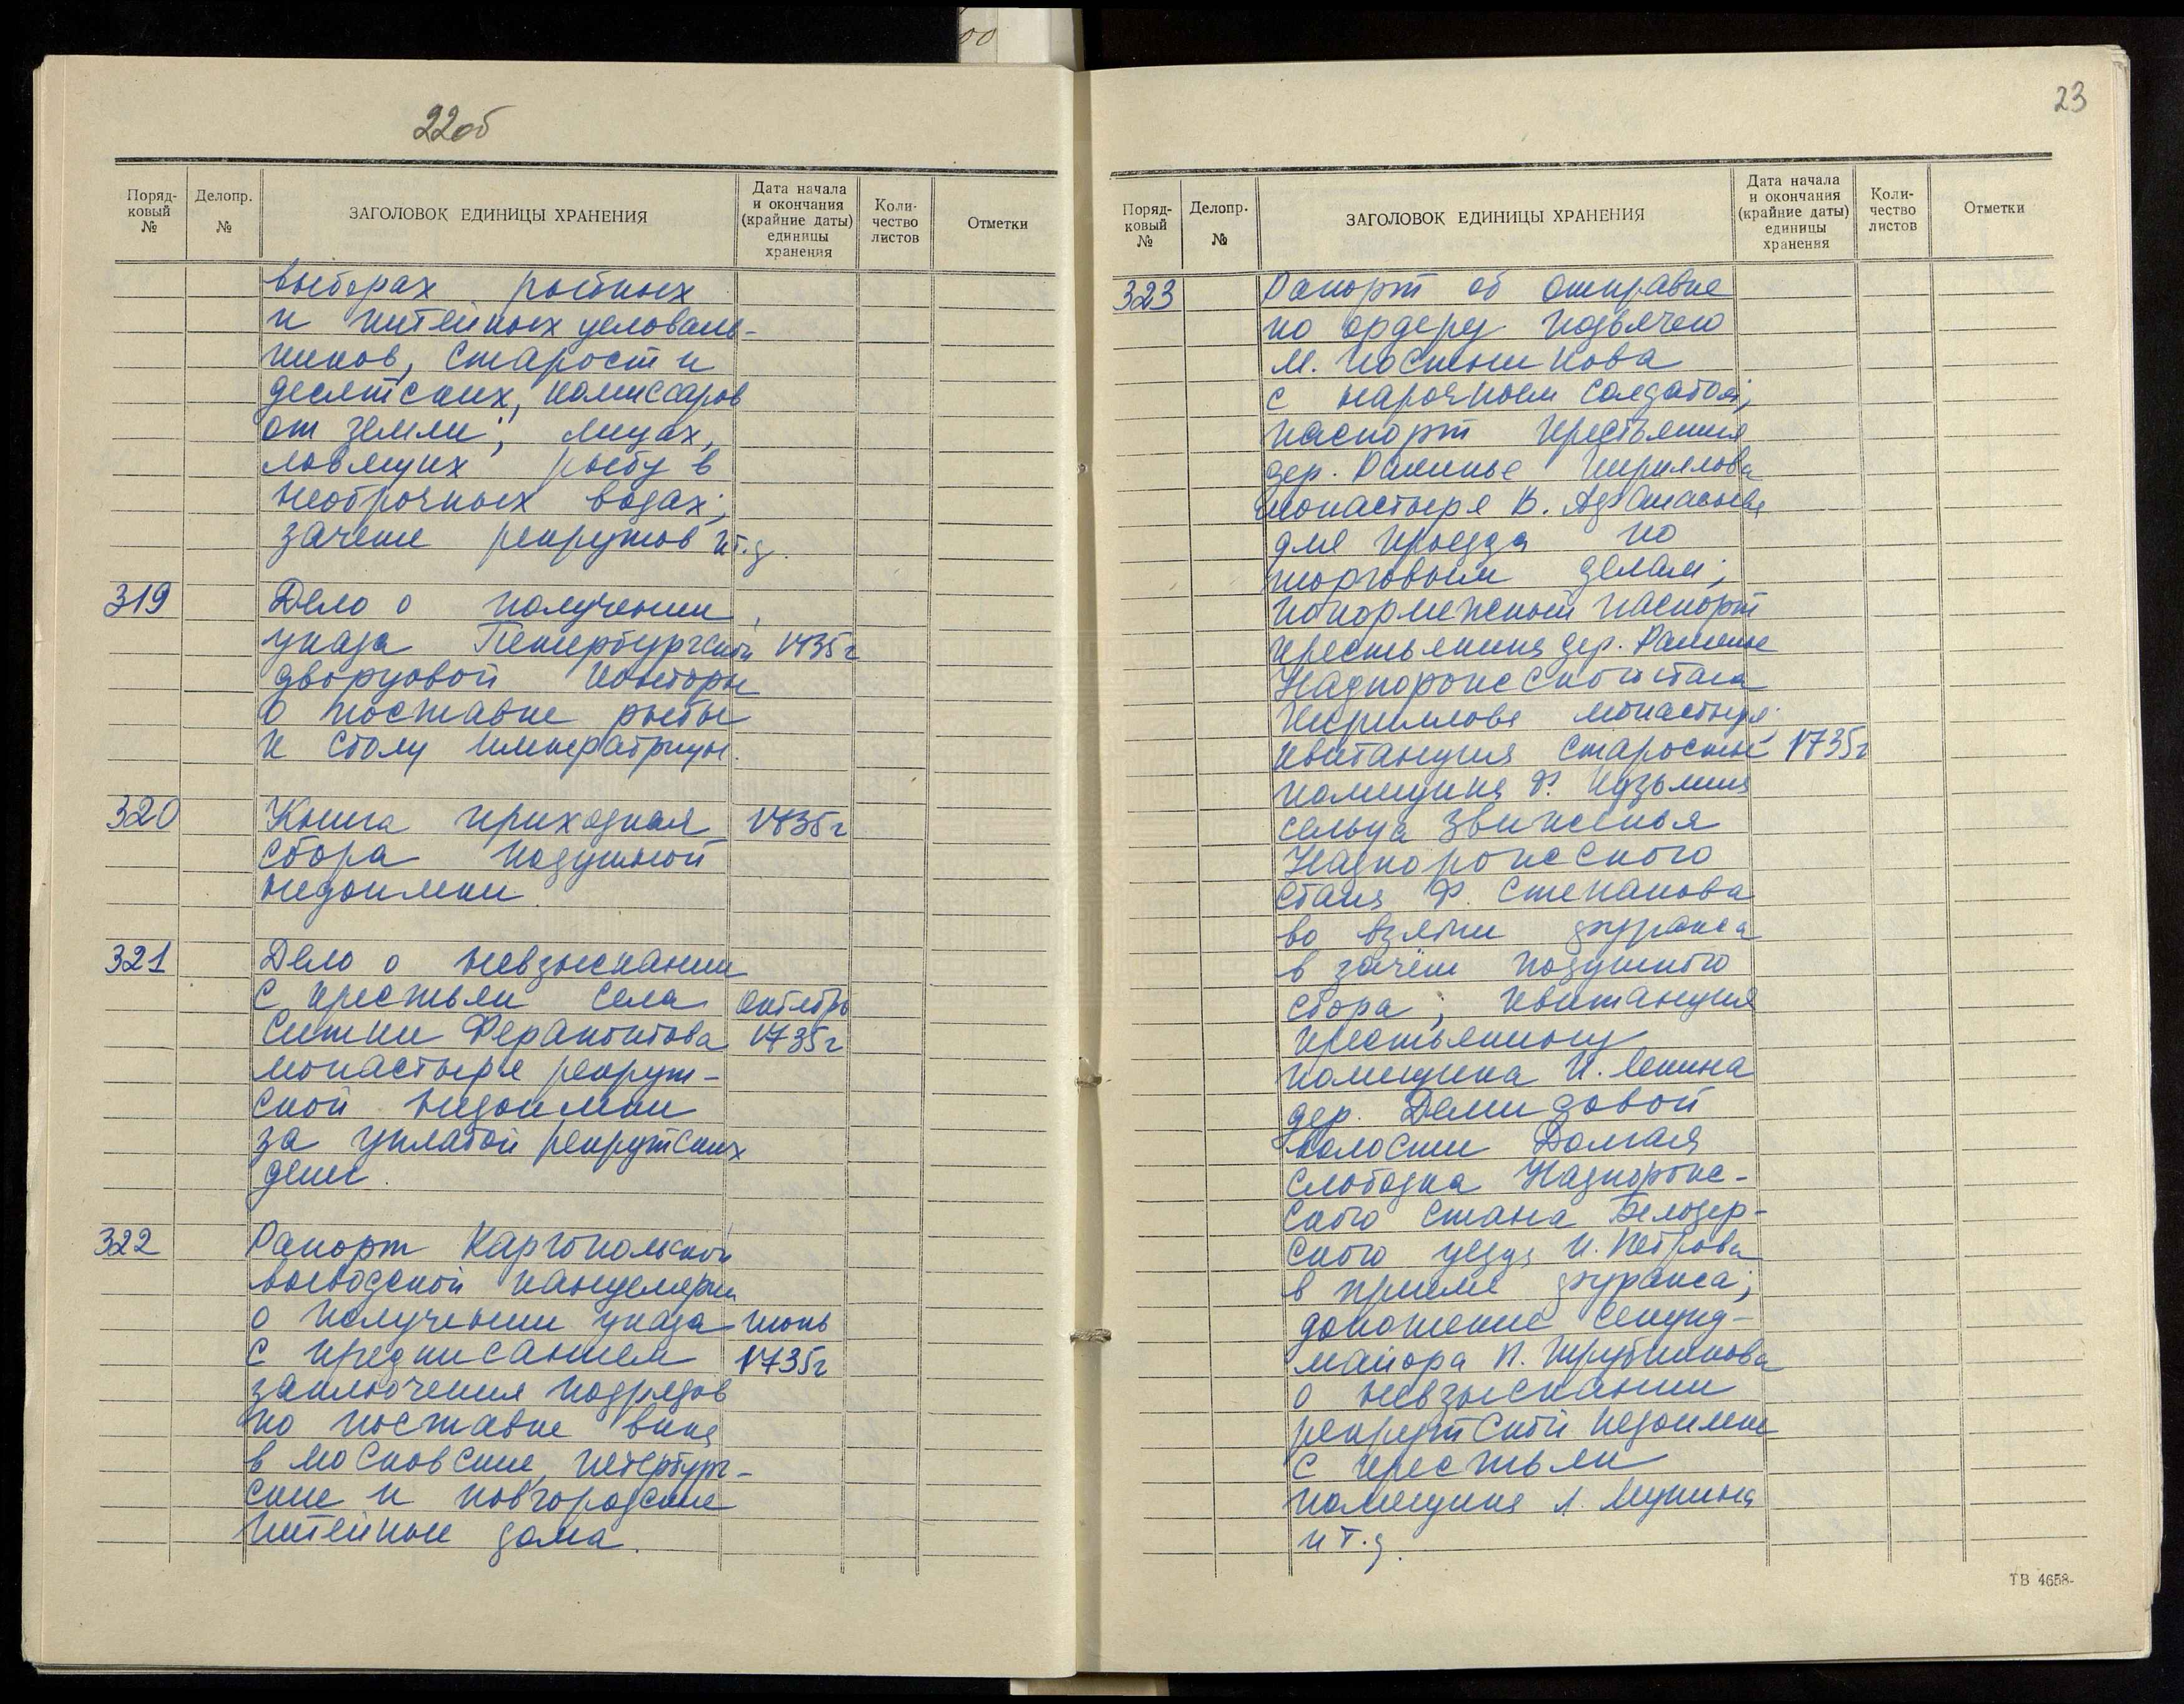 00
22об
Поряд-
ковый
№
Делопр.
№
ЗАГОЛОВОК ЕДИНИЦЫ ХРАНЕНИЯ
Дата начала
и окончания
(крайние даты)
единицы
хранения
Коли-
чество
листов
Отметки
выборах рыбных
и питейных целоваль-
ников, старост и
десятских, комиссаров
от земли; лицах,
ловящих рыбу в
необрочных водах;
зачете рекрутов и т.д.
319
Дело о получении
указа Петербургской 1735г
дворцовой конторы
о поставке рыбы
к столу императрицы.
320
Книга приходная 1735г
сбора подушной
недоимки
321
Дело о невзыскании
с крестьян села октябрь
Ситки Ферапонтова 1735г
монастыря рекрут-
ской недоимки
за уплатой рекрутских
денег.
322
Рапорт Каргопольской
воеводской канцелярии
о получении указа июнь
с предписанием 1735г
заключения подрядов
по поставке вина
в московские, петербург-
ские и новгородские
питейные дома.
23
Поряд-
ковый
№
Делопр.
№
ЗАГОЛОВОК ЕДИНИЦЫ ХРАНЕНИЯ
Дата начала
и окончания
(крайние даты)
единицы
хранения
Коли-
чество
листов
Отметки
323
Рапорт об отправке
по ордеру подьячего
М. Постникова
с нарочным солдатом;
паспорт крестьянина
дер. Раменье Кириллова
монастыря В. Афанасьева
для проезда по
торговым делам;
покормежный паспорт
крестьянина дер. Раменье
Надпорожского стана
Кириллова монастыря
квитанция старосты 1735г
помещика Ф. Кузьмина
сельца Звиженья
Надпорожского
стана Ф. Степанова
во взятии фуража
в зачёт подушного
сбора; квитанция
крестьянину
помещика И. Ленина
дер. Демидовой
волости Долгая
слободка Надпорож-
ского стана Белозер-
ского уезда И. Петрова
в приеме фуража;
доношение секунд-
майора П. Трубникова
о невзыскании
рекрутской недоимки
с крестьян
помещика Л. Мунина
и т.д.
ТВ 4658-